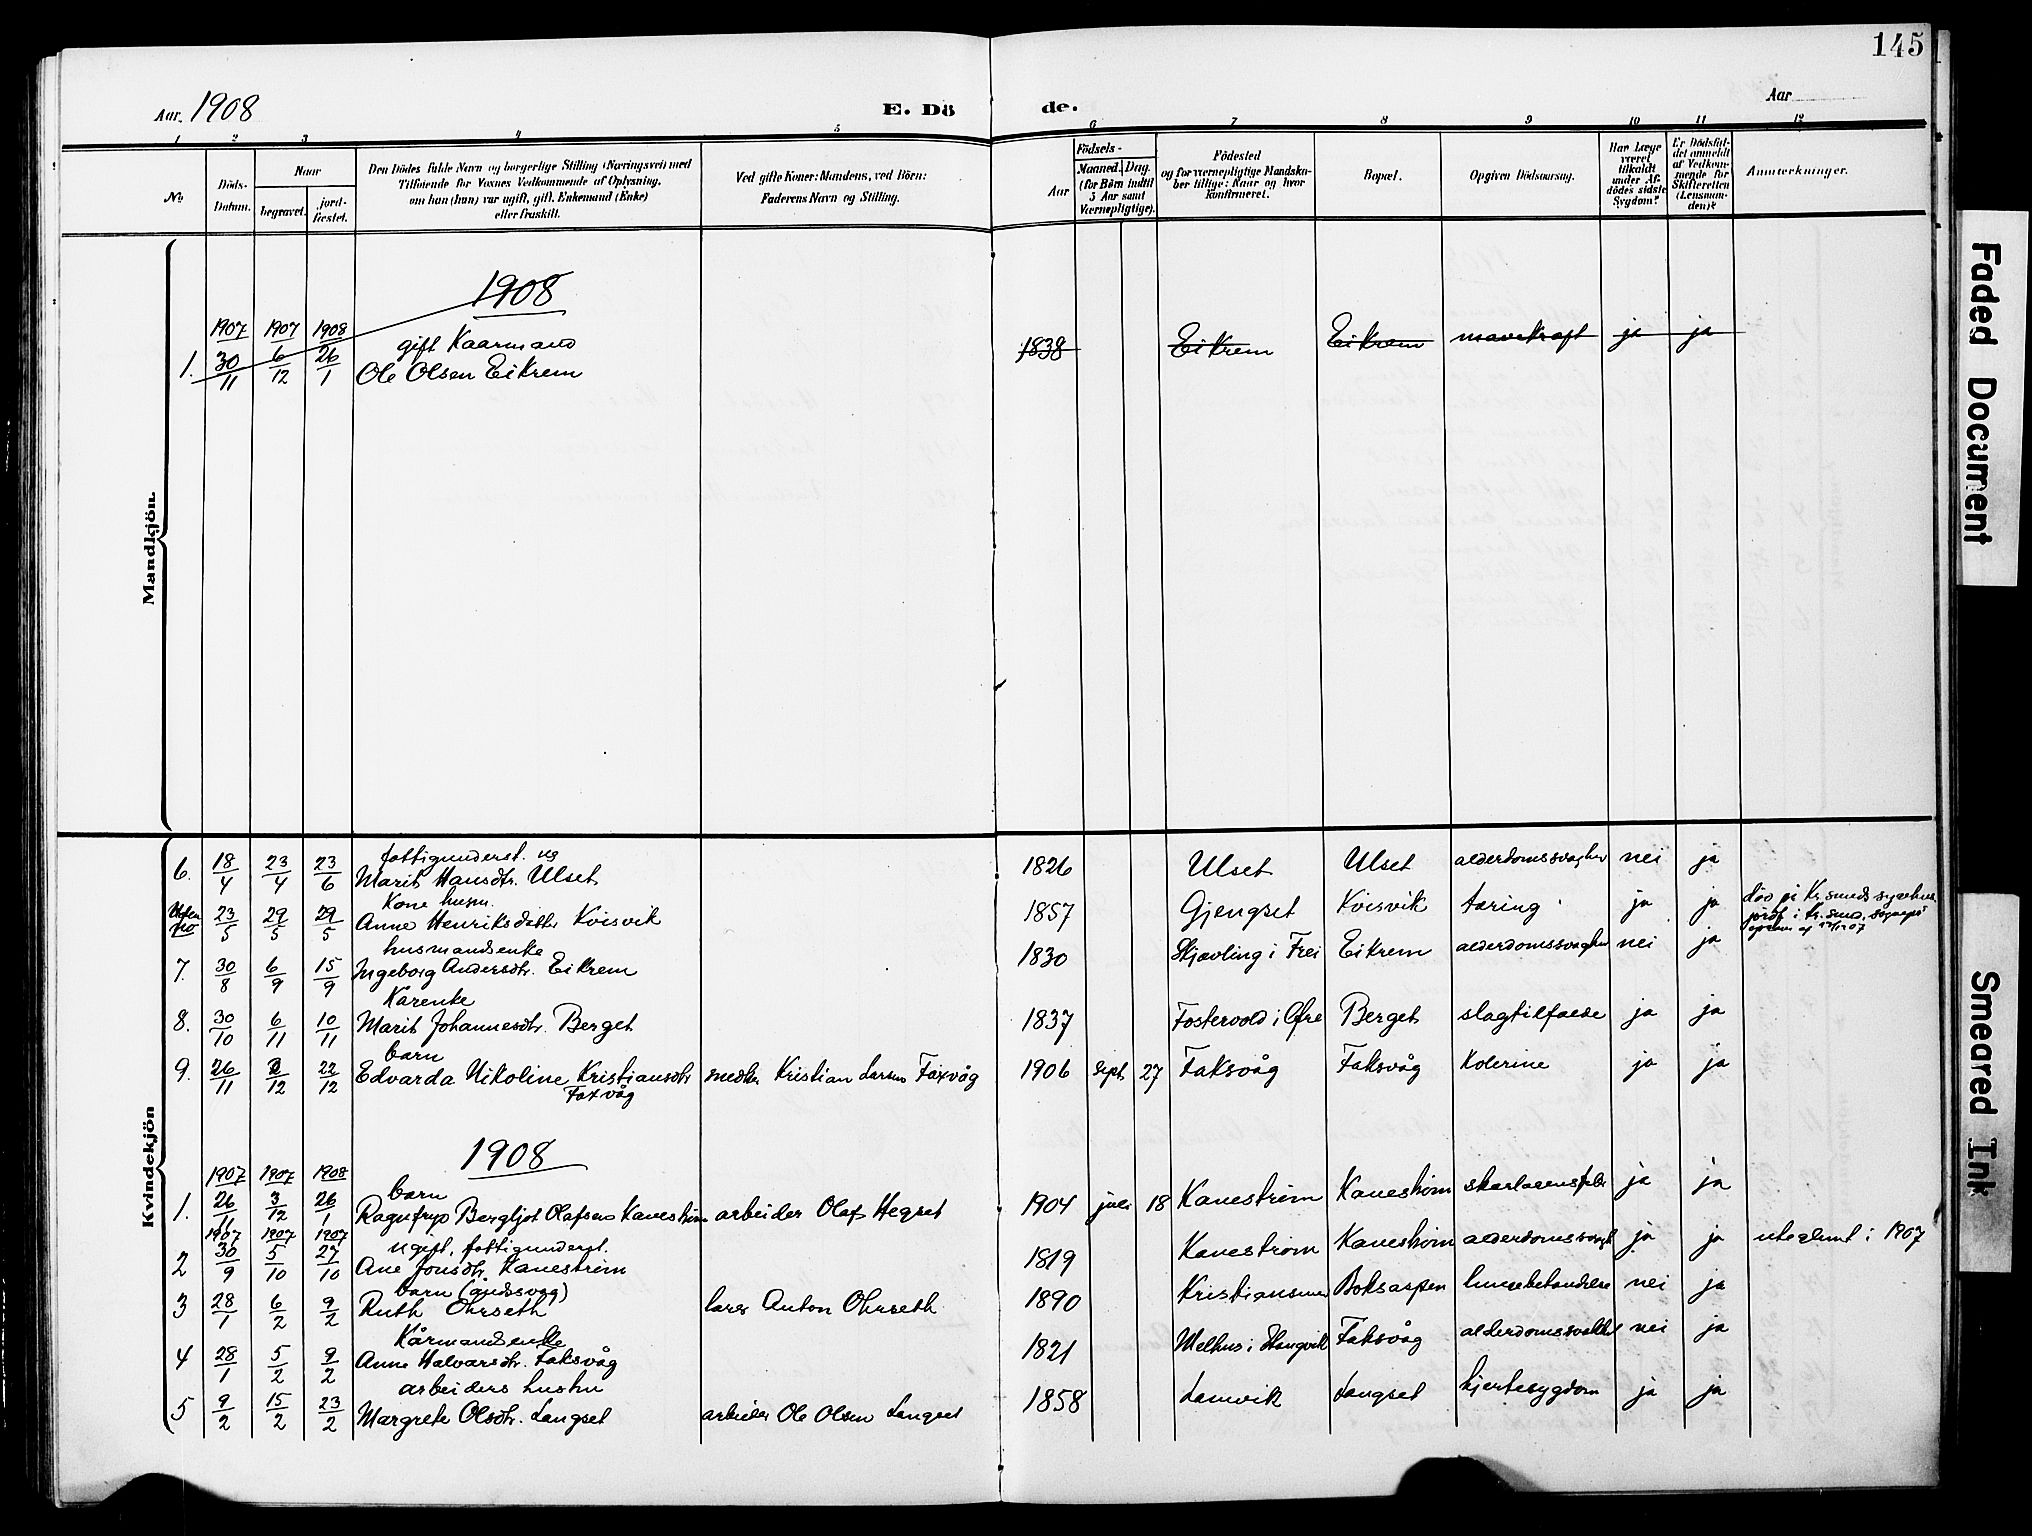 145
Aar. 1908
E. Dö de.
Aar
1 2 3 4 5 6 7 8 9 10 11 12
No
Döds-Datum.
Naar
begravet.
jord-fæstet.
Den Dödes fulde Navn og borgerlige Stilling (Næringsvei) med
Tilföiende for Voxnes Vedkommende af Oplysning,
om han (hun) var ugift, gift, Enkemand (Enke)
eller fraskilt.
Ved gifte Koner: Mandens, ved Börn:
Faderens Navn og Stilling.
Födsels-
Aar
Maaned. Dag.
(for Börn indtil
5 Aar samt
Værnepligtige).
Födested
og for værnepligtige Mandska-
ber tillige: Naar og hvor
konfirmeret.
Bopæl.
Opgiven Dödsaarsag.
Har Læge
været
tilkaldt
under Af-
dödes sidste
Sygdom?
Er Dödsfal-
det anmeldt
af Vedkom-
mende for
Skifteretten
(Lensman-
den)?
Anmerkninger.
Mandkjön.
1908
1907 1907 1908
gift Kaarmand
1. 30/11 6/12 26/1 Ole Olsen Eikrem 1838 Eikrem Eikrem mavekræft ja ja
Kvindekjön
fattigunderst. ug
6. 18/4 23/4 23/6 Marit Hansdtr. Ulset 1826 Ulset Ulset nei ja
Kone husm.
Uten no 23/5 29/5 29/5 Anne Henriksdatter Kvisvik 1857 Gjengset Kvisvik tæring ja ja død på Kr.sunds sygehus
jordf. i Kr.sund.
husmandsenke
7. 30/8 6/9 15/9 Ingeborg Andersdtr. Eikrem 1830 Skjævling i Frei Eikrem nei ja
Karenke
8. 30/10 6/11 10/11 Marit Johannesdtr. Berget 1837 Fostervold i Øre Berget slagtilfælde ja ja
barn
9. 26/11 2/12 22/12 Edvarda Nikoline Kristiansdtr Kristian Larsen Faxvåg 1906 sept 27 Faksvåg Faksvåg Kolerine ja ja
Faxvåg
1908
1907 1907 1908
barn
1. 26/11 3/12 26/1 Bergljot Olafsen Kanestrøm arbeider Olaf Hegset 1904 juli 18 Kanestrøm Kanestrøm ja ja
1907 1907 1907
ugift, fattigunderst.
2 30/9 5/10 27/10 Ane Jonsdtr. Kanestrøm 1819 Kanestrøm Kanestrøm ja ja uteglemt i 1907
barn (åndssvag)
3 28/1 6/2 9/2 Ruth Ohrseth lærer Anton Ohrseth 1890 Boksaspen nei ja
Kårmandsenke
4 28/1 5/2 9/2 Anne Halvarsdtr. Faksvåg 1821 Melhus i Stangvik Faksvåg nei ja
arbeiders hustru
5 9/2 15/2 23/2 Margrete Olsdtr. Langset arbeider Ole Olsen Langset 1858 Lamvik Langset hjertesygdom ja ja
Faded Document
Smeared Ink